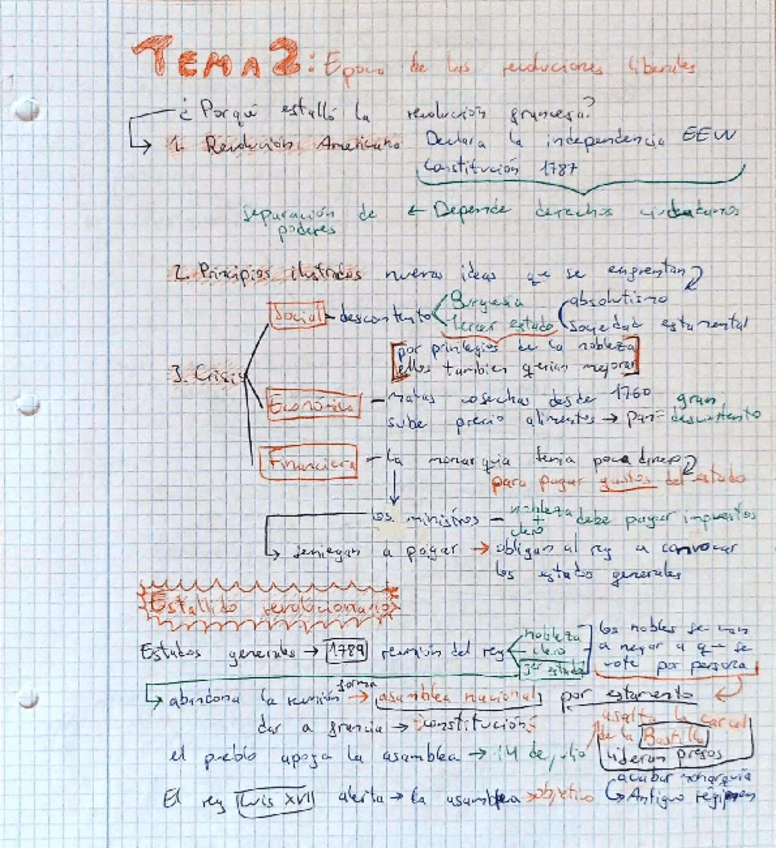 TEMA 2: Epoca de las revoluciones liberales
¿Porqué estalló la revolución francesa?
1. Revolución Americana Declara la independencia EEUU
Constitución 1787
separación de poderes ← Depende derechos ciudadanos
2. Principios ilustrados nuevas ideas que se enfrentan
absolutismo
sociedad estamental
3. Crisis
Social - descontento Burguesia
tercer estado
por privilegios de la nobleza
ellos tambien querian mejorar
Económica - malas cosechas desde 1760
sube precio alimentos → pan = gran descontento
Financiera - la monarquia tenia poco dinero
para pagar gastos del estado
los ministros - nobleza + clero debe pagar impuestos
se niegan a pagar → obligan al rey a convocar
los estado generales
Estallido revolucionario
Estados generales → 1789 reunión del rey nobleza
clero
3er estado
los nobles se van
a negar a que se
vote por persona
por estamento
abandona la reunión forma → asamblea nacional
dar a francia → constitución
el pueblo apoya la asamblea → 14 de julio
asalta la carcel
de la Bastilla
liberan presos
El rey Luis XVI alerta → la asamblea → objetivo acabar monarquia
→ Antiguo régimen